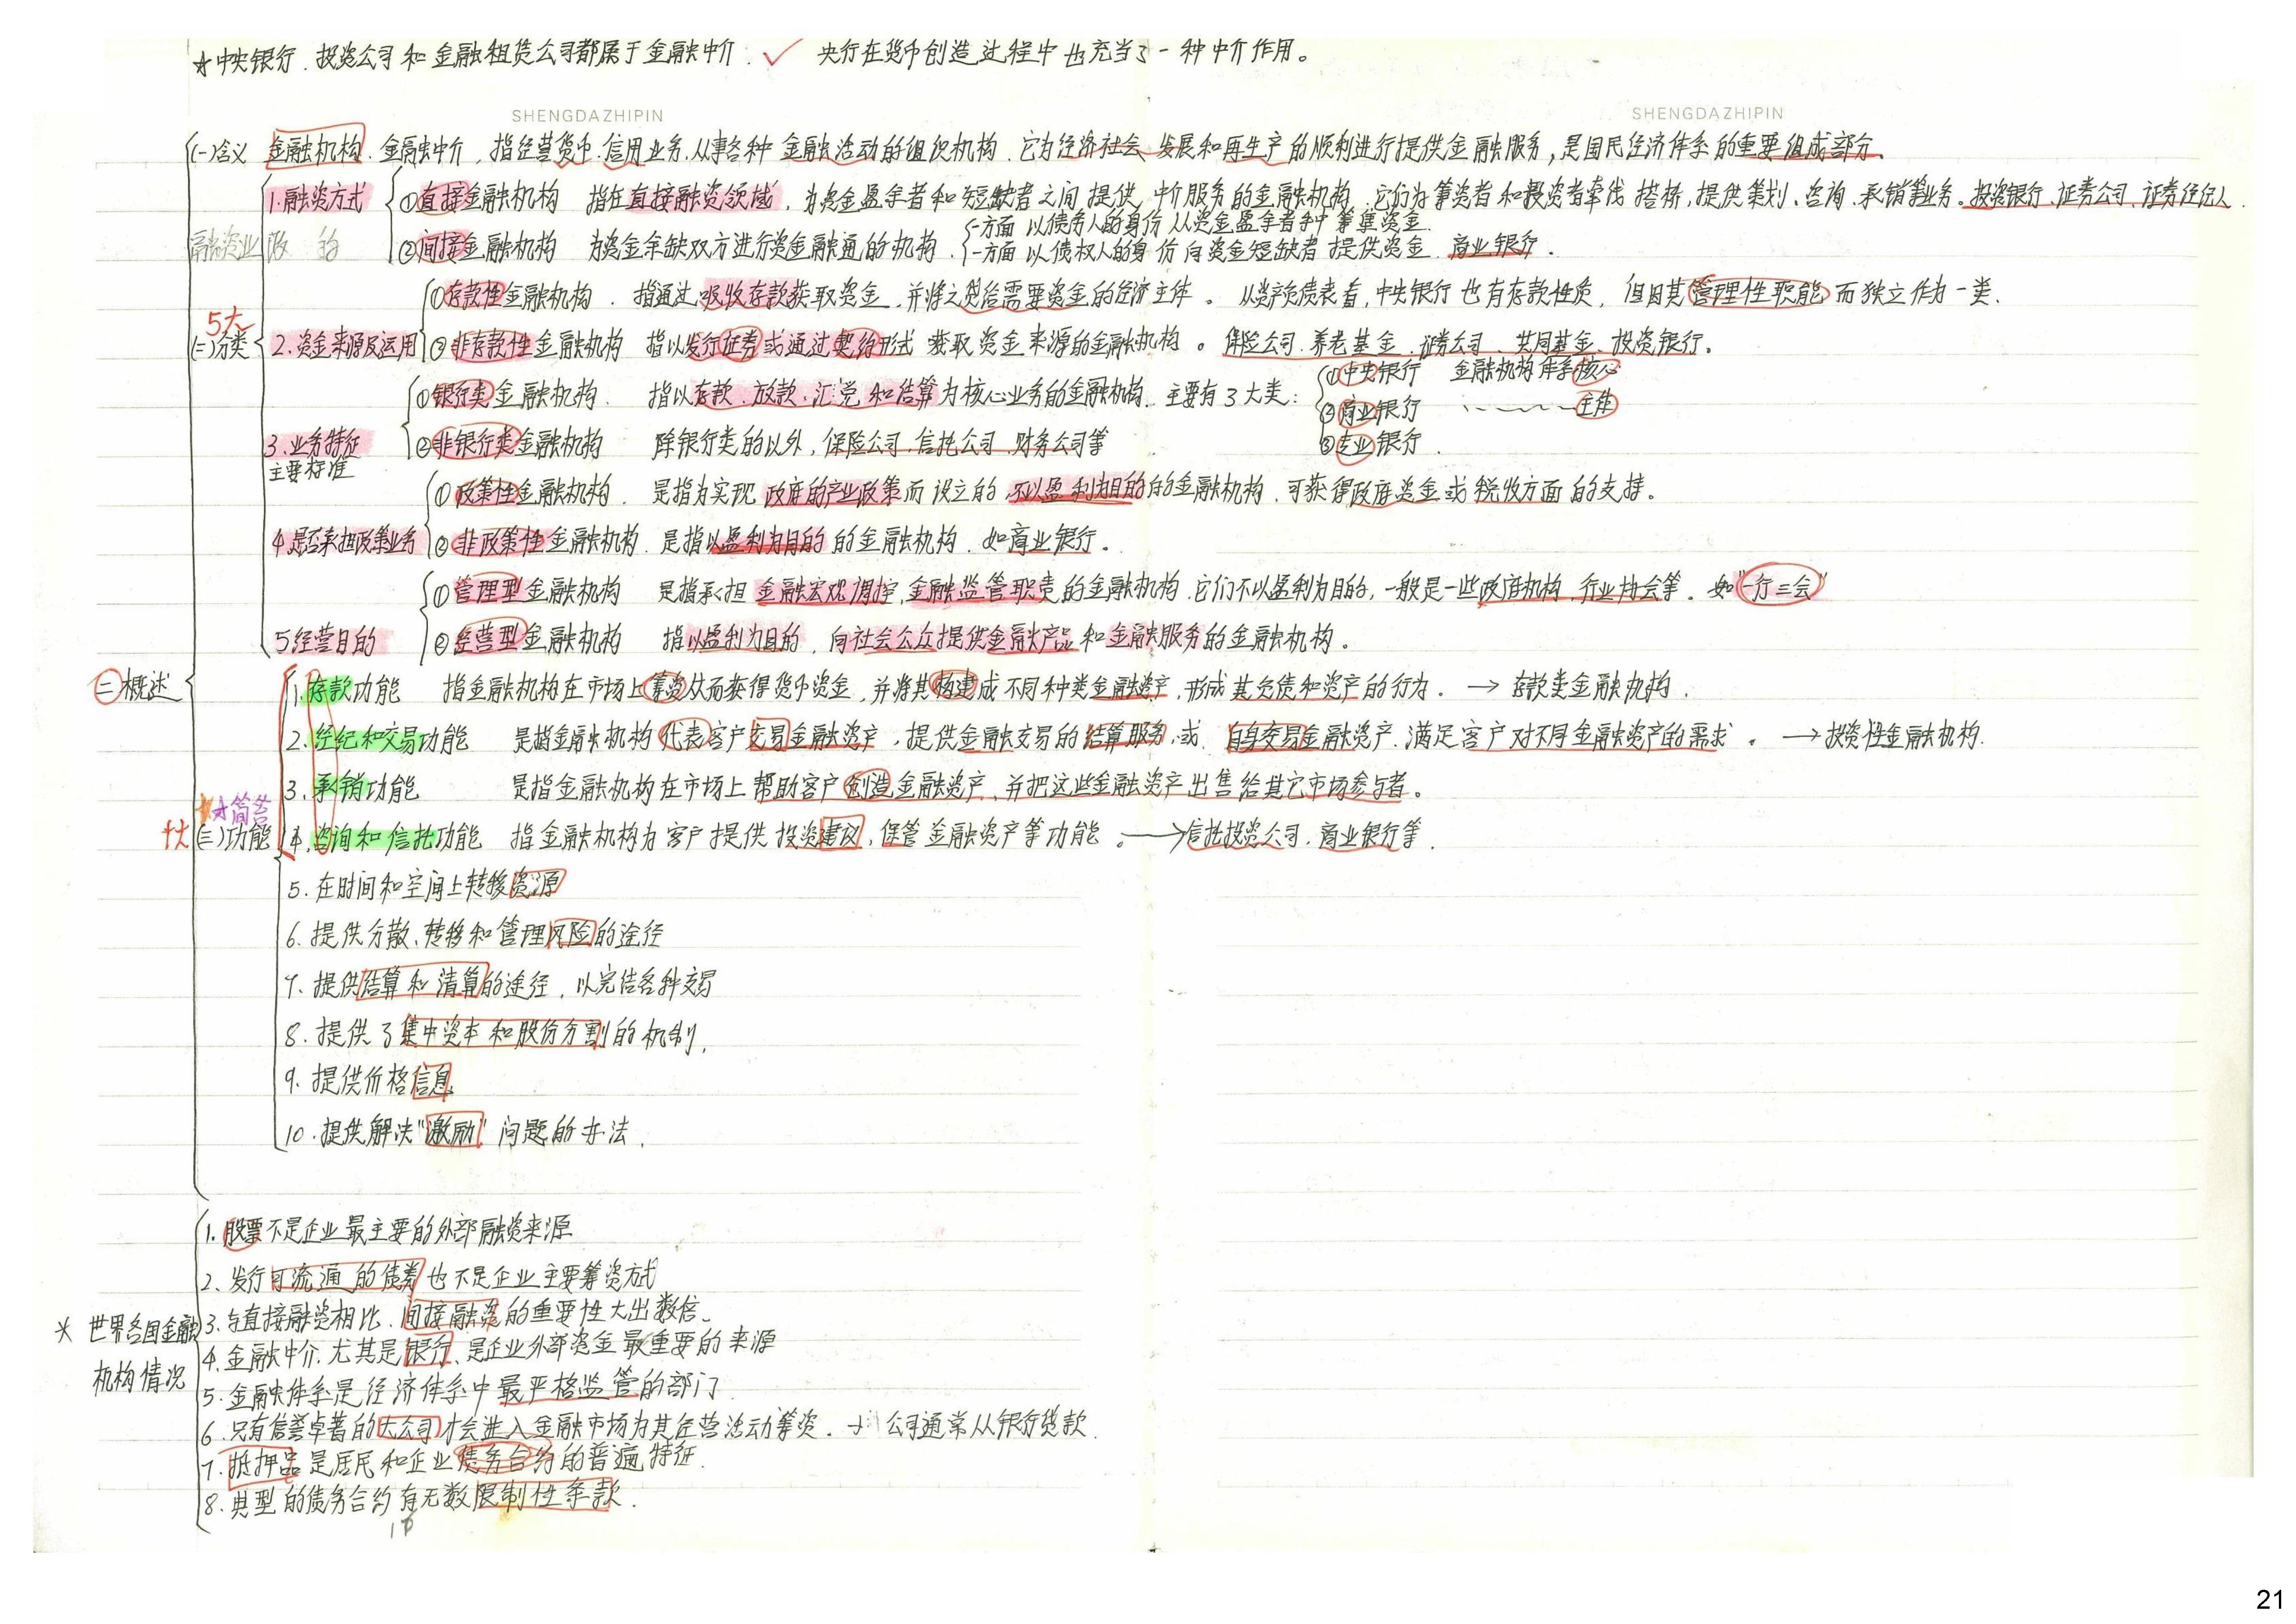 ☆中央银行、投资公司和金融租赁公司都属于金融中介. ✓ 央行在货币创造过程中也充当了一种中介作用。
SHENGDAZHIPIN
SHENGDAZHIPIN
(一)含义 金融机构、金融中介,指经营货币、信用业务,从事各种金融活动的组织机构.它为经济社会发展和再生产的顺利进行提供金融服务,是国民经济体系的重要组成部分.
1.融资方式
①直接金融机构 指在直接融资领域,为资金盈余者和短缺者之间提供中介服务的金融机构.它们为筹资者和投资者牵线搭桥,提供策划、咨询、承销等业务。投资银行、证券公司、证券经纪人.
融资业政的
②间接金融机构 为资金余缺双方进行资金融通的机构.
一方面以债务人的身份从资金盈余者手中筹集资金.
一方面以债权人的身份向资金短缺者提供资金. 商业银行.
5大
(二)分类
2.资金来源及运用
①存款性金融机构. 指通过吸收存款获取资金,并将之贷给需要资金的经济主体。从资产负债表看,中央银行也有存款性质,但因其管理性职能而独立作为一类.
②非存款性金融机构 指以发行证券或通过契约形式获取资金来源的金融机构。保险公司、养老基金、证券公司、共同基金、投资银行。
3.业务特征
主要标准
①银行类金融机构. 指以存款、放款、汇兑和结算为核心业务的金融机构.主要有3大类:
①中央银行 金融机构体系核心
②商业银行 ﹏﹏主体
③专业银行.
②非银行类金融机构 除银行类的以外,保险公司、信托公司、财务公司等
4.是否承担政策业务
①政策性金融机构. 是指为实现政府的产业政策而设立的不以盈利为目的的金融机构,可获得政府资金或税收方面的支持。
②非政策性金融机构.是指以盈利为目的的金融机构.如商业银行。
5经营目的
①管理型金融机构 是指承担金融宏观调控、金融监管职责的金融机构.它们不以盈利为目的,一般是一些政府机构、行业协会等。如“一行三会”
②经营型金融机构 指以盈利为目的,向社会公众提供金融产品和金融服务的金融机构。
㊁概述
十大 ☆简答
(三)功能
1.存款功能 指金融机构在市场上筹资从而获得货币资金,并将其构建成不同种类金融资产,形成其负债和资产的行为.→存款类金融机构.
2.经纪和交易功能 是指金融机构代表客户交易金融资产,提供金融交易的结算服务,或自身交易金融资产.满足客户对不同金融资产的需求。→投资性金融机构.
3.承销功能 是指金融机构在市场上帮助客户创造金融资产,并把这些金融资产出售给其它市场参与者。
4.咨询和信托功能 指金融机构为客户提供投资建议,保管金融资产等功能。→信托投资公司、商业银行等.
5.在时间和空间上转移资源
6.提供分散、转移和管理风险的途径
7.提供结算和清算的途径,以完结各种交易
8.提供了集中资本和股份分割的机制.
9.提供价格信息
10.提供解决“激励”问题的办法.
※世界各国金融机构情况
1.股票不是企业最主要的外部融资来源
2.发行可流通的债券也不是企业主要筹资方式
3.与直接融资相比,间接融资的重要性大出数倍。
4.金融中介.尤其是银行、是企业外部资金最重要的来源
5.金融体系是经济体系中最严格监管的部门
6.只有信誉卓著的大公司才会进入金融市场为其经营活动筹资.小公司通常从银行贷款.
7.抵押品是居民和企业债务合约的普遍特征.
8.典型的债务合约有无数限制性条款.
21